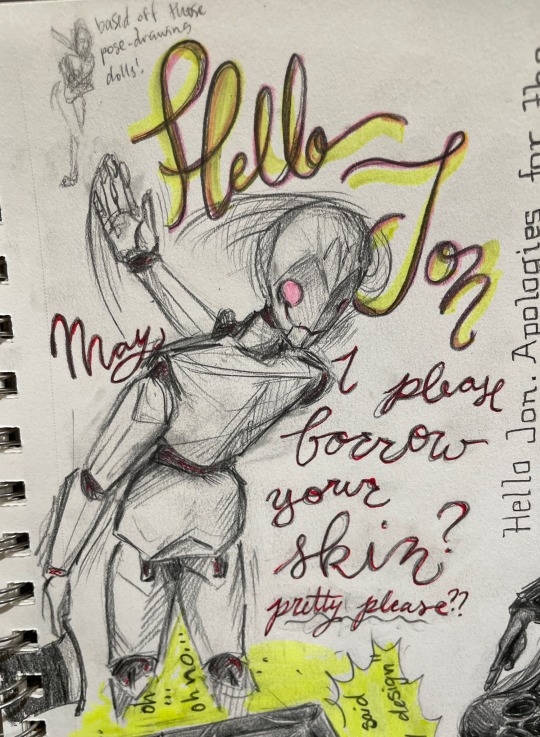 based off those
pose-drawing
dolls!
Hello
Jon
May I please
borrow
your
skin?
pretty please??
oh
...
oh no...
said
design
Hello Jon. Apologies for the